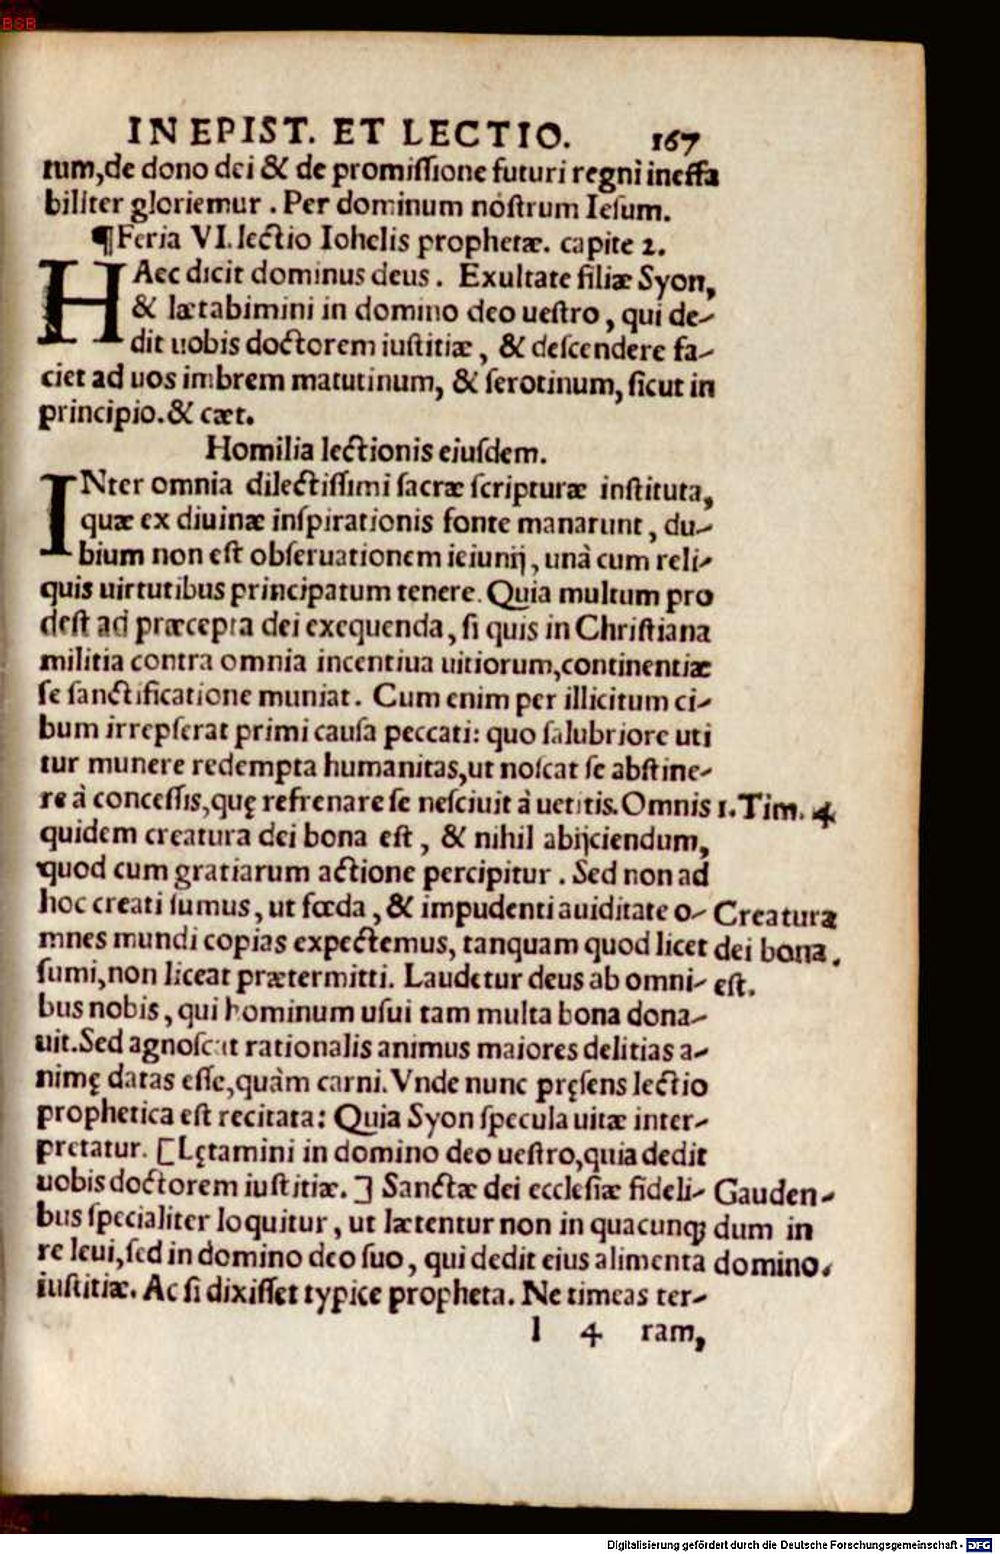 BSB
IN EPIST. ET LECTIO. 167
rum,de dono dei & de promiſſione futuri regni ineffa
biliter gloriemur . Per dominum noſtrum Ieſum.
¶Feria VI. lectio Iohelis prophetæ. capite 2.
HAec dicit dominus deus . Exultate filiæ Syon,
& lætabimini in domino deo ueſtro , qui de-
dit uobis doctorem iuſtitiæ , & deſcendere fa-
ciet ad uos imbrem matutinum, & ſerotinum, ſicut in
principio.& cæt.
Homilia lectionis eiuſdem.
INter omnia dilectiſſimi ſacræ ſcripturæ inſtituta,
quæ ex diuinæ inſpirationis fonte manarunt , du-
bium non eſt obſeruationem ieiunij , unà cum reli-
quis uirtutibus principatum tenere. Quia multum pro
deſt ad præcepta dei exequenda , ſi quis in Chriſtiana
militia contra omnia incentiua uitiorum,continentiæ
ſe ſanctificatione muniat . Cum enim per illicitum ci-
bum irrepſerat primi cauſa peccati: quo ſalubriore uti
tur munere redempta humanitas,ut noſcat ſe abſtine-
re à conceſſis,quę refrenare ſe neſciuit à uetitis. Omnis
1. Tim. 4
quidem creatura dei bona eſt , & nihil abijciendum,
quod cum gratiarum actione percipitur . Sed non ad
hoc creati ſumus , ut fœda , & impudenti auiditate o-
mnes mundi copias expectemus, tanquam quod licet
ſumi,non liceat prætermitti. Laudetur deus ab omni-
Creatura
dei bona
eſt.
bus nobis , qui hominum uſui tam multa bona dona-
uit.Sed agnoſcat rationalis animus maiores delitias a-
nimę datas eſſe,quàm carni. Vnde nunc pręſens lectio
prophetica eſt recitata: Quia Syon ſpecula uitæ inter-
pretatur. [Lętamini in domino deo ueſtro,quia dedit
uobis doctorem iuſtitiæ. ] Sanctæ dei eccleſiæ fideli-
bus ſpecialiter loquitur , ut lætentur non in quacunqꝫ
re leui,ſed in domino deo ſuo , qui dedit eius alimenta
Gauden-
dum in
domino.
iuſtitiæ. Ac ſi dixiſſet typice propheta. Ne timeas ter-
l 4 ram,
Digitalisierung gefördert durch die Deutsche Forschungsgemeinschaft - DFG